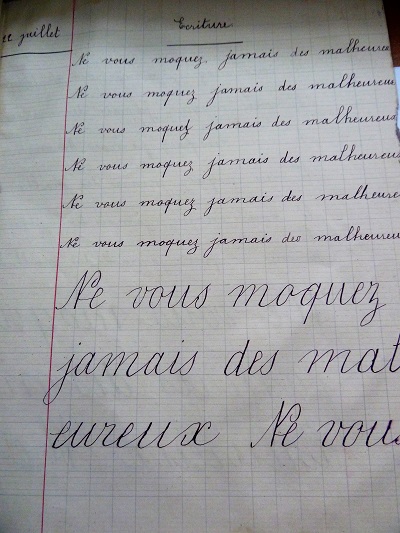 Ecriture
juillet
Ne vous moquez jamais des malheureu
Ne vous moquez jamais des malheureux
Ne vous moquez jamais des malheureux
Ne vous moquez jamais des malheureux
Ne vous moquez jamais des malheure
Ne vous moquez jamais des malheureu
Ne vous moquez
jamais des mal
eureux Ne vous